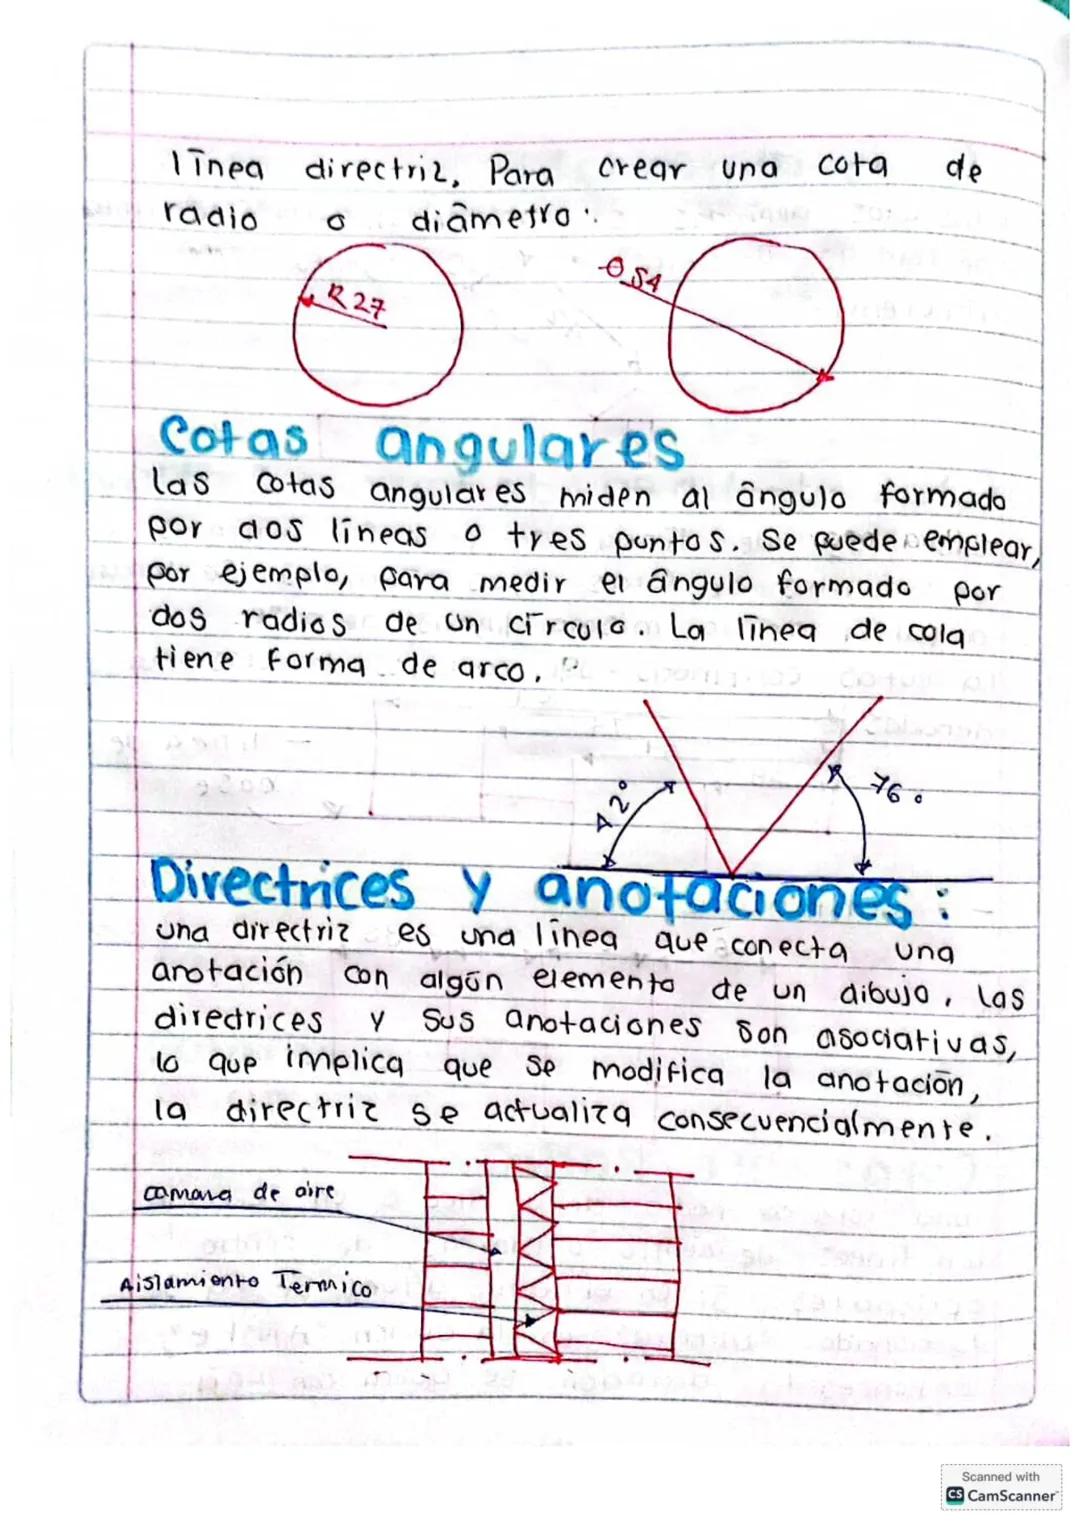 línea directriz, Para crear una cota de
radio o diámetro:
R27
Ø 54
Cotas angulares
las cotas angulares miden al ángulo formado
por dos líneas o tres puntos. Se puede emplear,
por ejemplo, para medir el ángulo formado por
dos radios de un círculo. La línea de cola
tiene forma de arco.
42°
76°
Directrices y anotaciones:
una directriz es una línea que conecta una
anotación con algún elemento de un dibujo, las
directrices y sus anotaciones son asociativas,
lo que implica que se modifica la anotación,
la directriz se actualiza consecuencialmente.
camara de aire
Aislamiento Termico
Scanned with
CS CamScanner